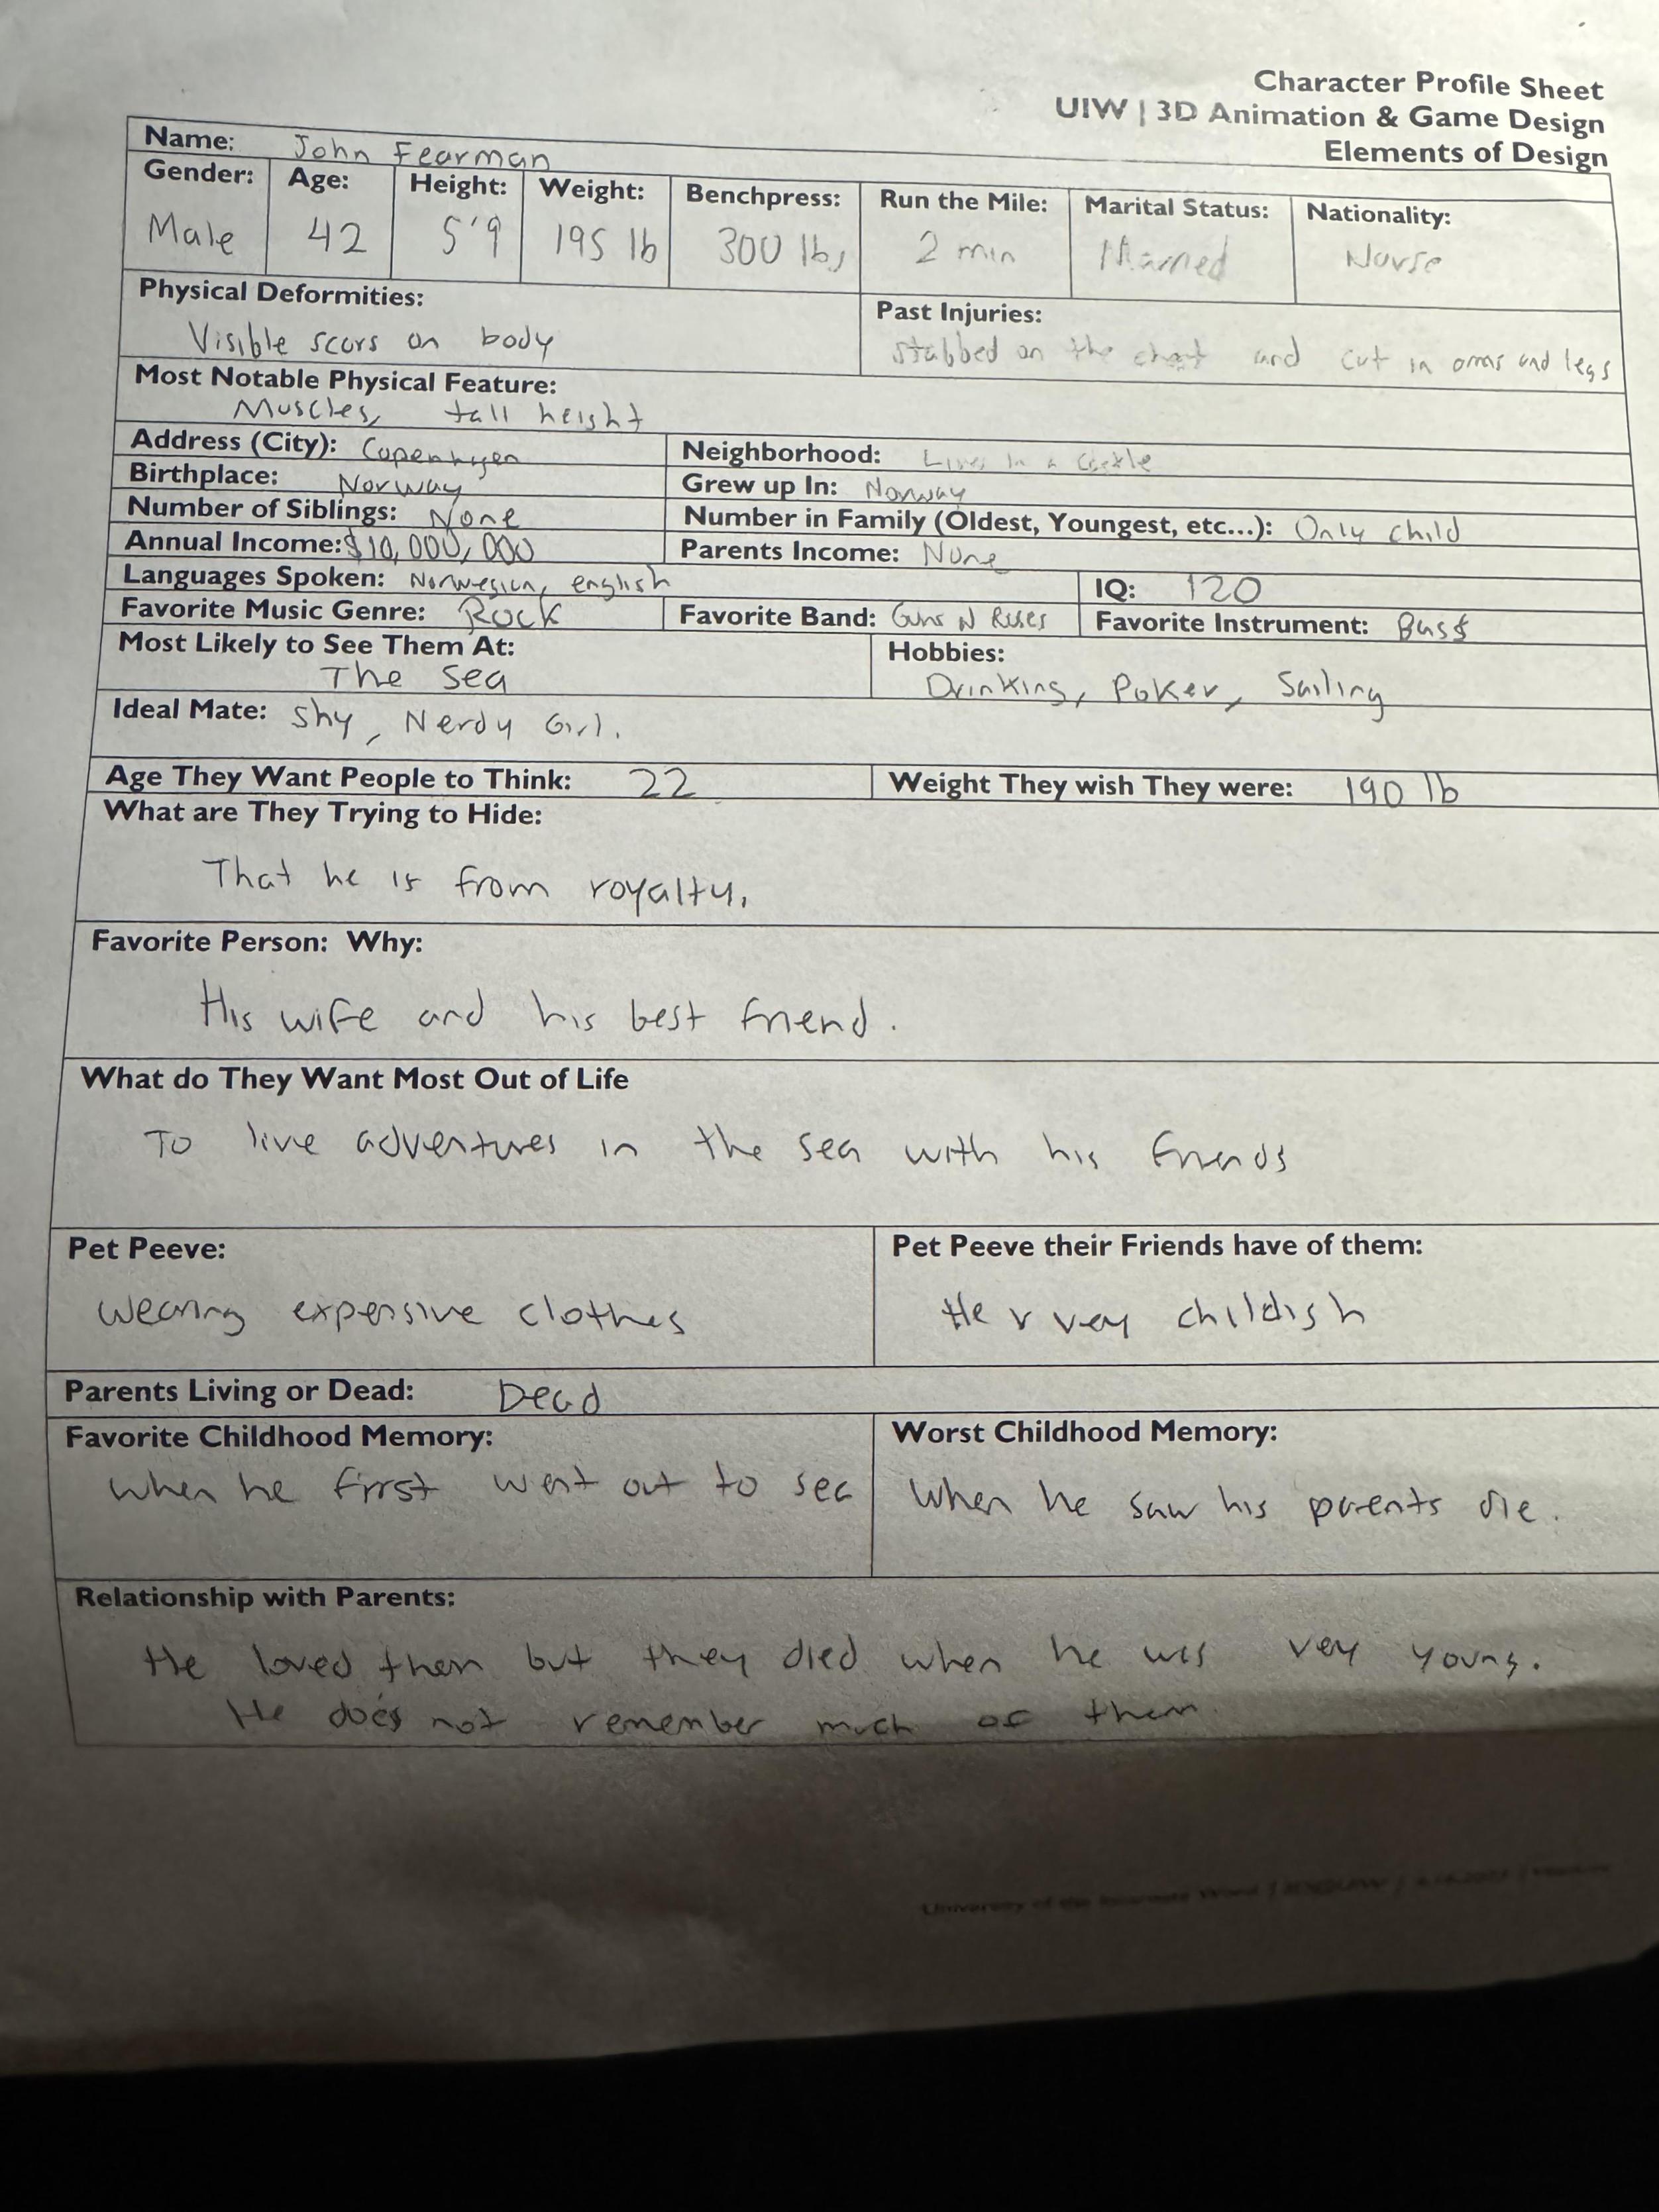 Character Profile Sheet
UIW | 3D Animation & Game Design
Elements of Design
Name: John Fearman
Gender: Age: Height: Weight: Benchpress: Run the Mile: Marital Status: Nationality:
Male 42 5'9 195 lb 300 lbs 2 min Married Norse
Physical Deformities: Past Injuries:
Visible scars on body stabbed on the chest and cut in arms and legs
Most Notable Physical Feature:
Muscles, tall height
Address (City): Copenhagen Neighborhood: Lives In a Castle
Birthplace: Norway Grew up In: Norway
Number of Siblings: None Number in Family (Oldest, Youngest, etc...): Only child
Annual Income: $10,000,000 Parents Income: None
Languages Spoken: Norwegian, english IQ: 120
Favorite Music Genre: Rock Favorite Band: Guns N Roses Favorite Instrument: Bass
Most Likely to See Them At: Hobbies:
The sea Drinking, Poker, Sailing
Ideal Mate: shy, Nerdy Girl.
Age They Want People to Think: 22 Weight They wish They were: 190 lb
What are They Trying to Hide:
That he is from royalty.
Favorite Person: Why:
His wife and his best friend.
What do They Want Most Out of Life
To live adventures in the sea with his friends
Pet Peeve: Pet Peeve their Friends have of them:
wearing expensive clothes He very childish
Parents Living or Dead: Dead
Favorite Childhood Memory: Worst Childhood Memory:
when he first went out to sea When he saw his parents die.
Relationship with Parents:
He loved them but they died when he was very young.
He does not remember much of them.
University of the Incarnate Word